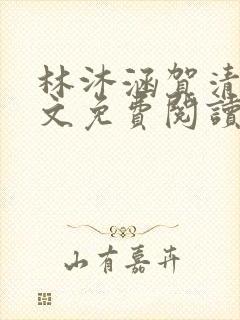 林沐涵贺清
文免費閱讀
山有嘉卉